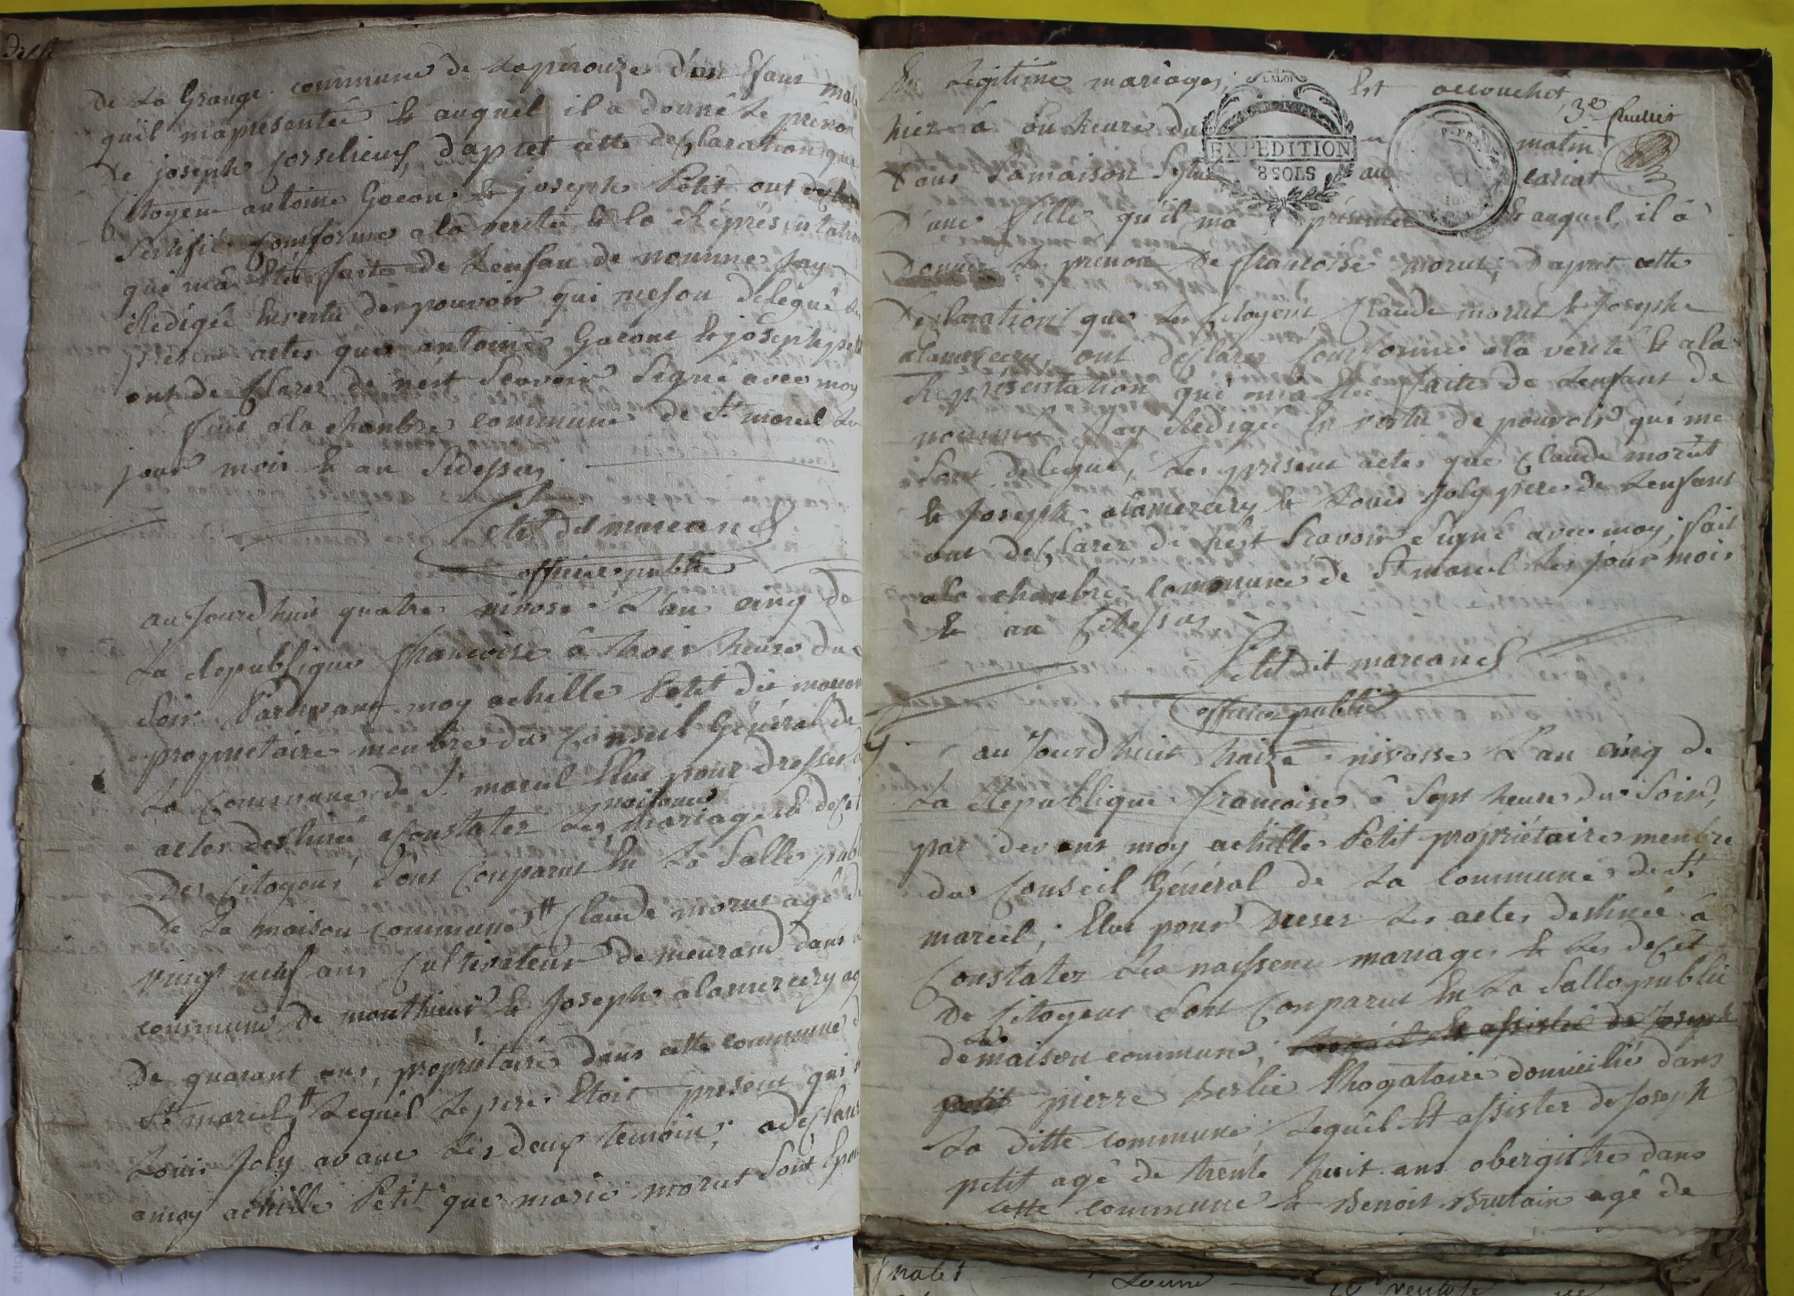 de La Grange commune de Laperouze d'un Esans mal
quil mapresentée & auquel il a donné Le prénom
de joseph Corselieus, daptet cette desclaration que
Citoyens antoine Gacon & joseph Petit ont desclare
Sertifié Comforme ala veritée & la Répresentation
qui ma Etée faite de Lensan de nommé Jay
Redigée Envertu des pouvoir qui meson délégué Le
présent actes que antoine Gacont & joseph petit
ont de sclarer de nest Scavoir Signé avec moy
fait ala chambre commune de St marcel Le
jour mois & an Sidessus
Petit dit marcand
officier public
aujourdhuit quatre nivose L'an cinq de
La Republique francoise à trois heure du
Soir Pardevant moy achille Petit dit marcan
propriétaire membre du Conseil Général de
La Commune de St marcel Elue pour dresser
actes destinée aConstater Les naissence mariage & deset
Des Citoyens Sont Conparut En La Salle publ
de La maison Commune Claude morut agé de
vingt neuf ans Cultivateur de meurand dans
commune de monthieux & Joseph alamercery ag
De quarant ans, propriétaire dans cette commune
St marcel, Lequel Lepere Etoit present qui
Louis Joly avant Les deux temoin, adesclare
amoy achille Petit que marie morut Sont Epou
En Legitime mariages, Est accouchet
3e feuillet
hier à onheure du matin
EXPEDITION
8 SOLS
Dans Samaison
D'une fille qu'il ma présenter & auquel il à
Donner Le prénon De francoise morut; daprat cette
Desclaration que Les Citoyens Claude morut & Joseph
alamercery ont desclarer Conforme ala verité & ala
Représentation qui ma Etée faite de Lenfant de
nommer Jay Redigée En vertu de pouvoir qui me
Sont delegué, Les present actes que Claude morut
& Joseph alamercery & Louis Joly pere de Lenfant
ont desclarer de nest Scavoir Signé avec moy, fait
ala chambre Commune de St marcel Les jour mois
& an Sidessus
Petit dit marcand
officier public
aujourdhuit traize nivosse L'an cinq de
La Republique francoise à Sept heure du Soir,
par devant moy achille Petit propriétaire membre
du Conseil Général de La Commune de St
marcel, Elue pour Dreser Les actes destinée à
Constater Les naissence mariage & Les deset
De Citoyens Sont Conparut En La Salle public
de La maison commune, Lequel Et assisté de Joseph
petit pierre Berlie Rhogataire domicilié dans
La ditte commune, Lequel Et assister de Joseph
petit agé de trente huit ans obergistre dans
cette commune & Benoit Brulair agé de